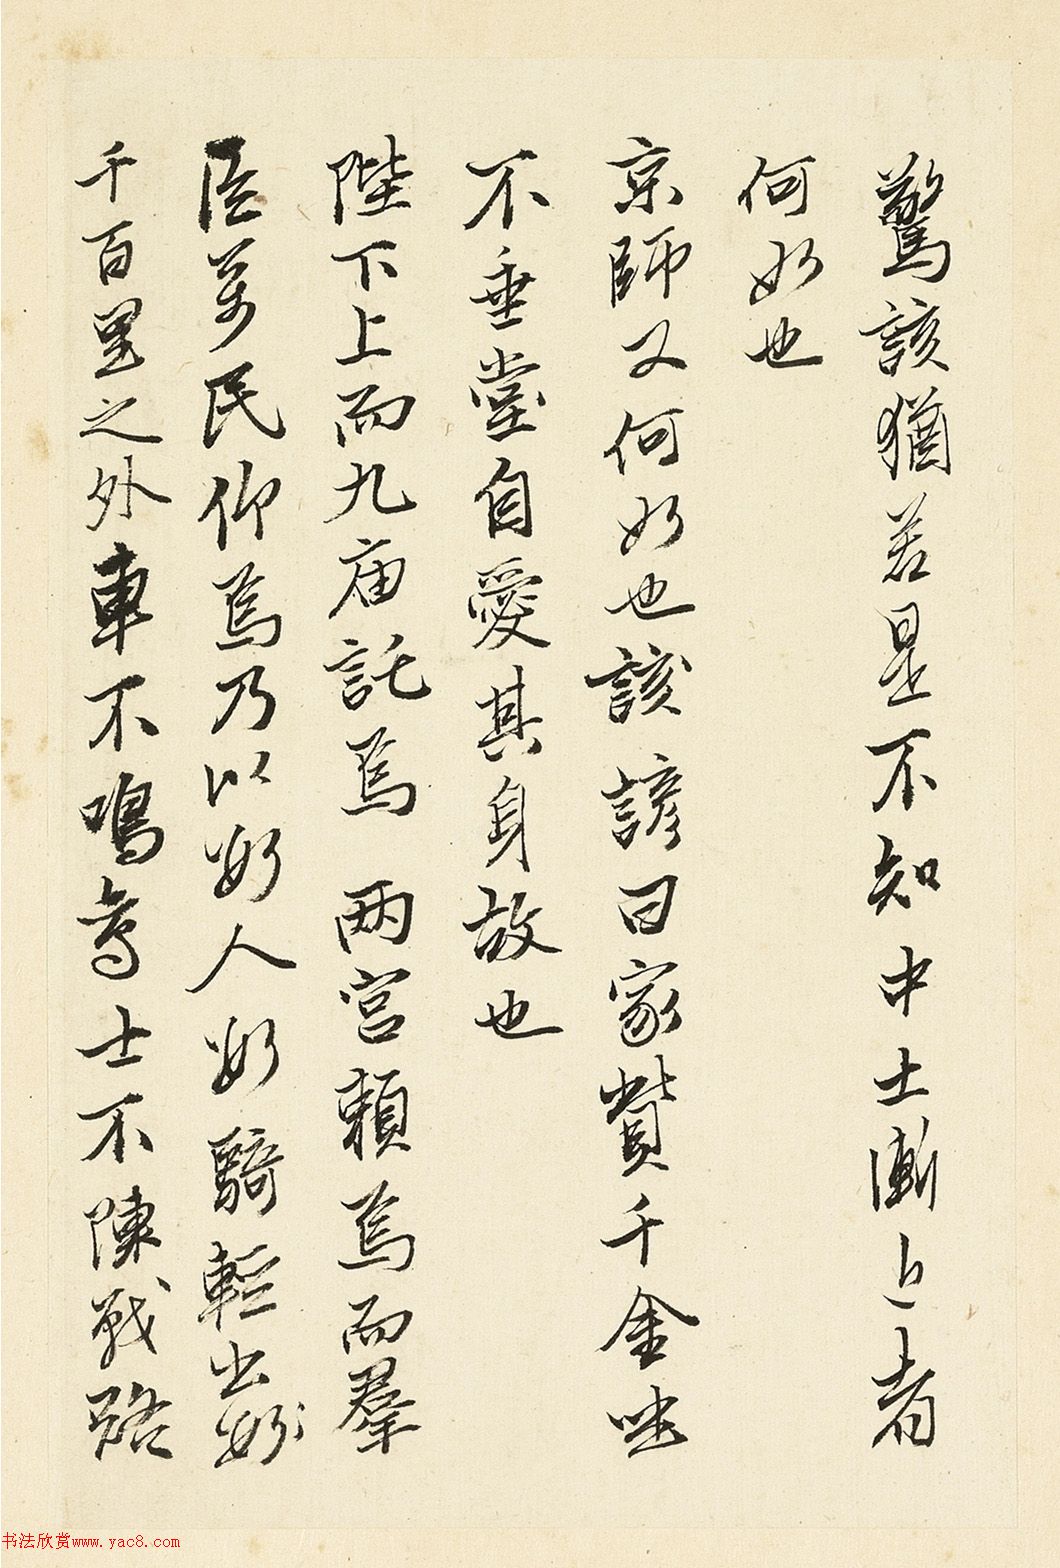 驚該猶若是不知中土漸者
何如也
京師又何如也該諺曰家貲千金坐
不垂堂自愛其身故也
陛下上而九庙託焉 两宫賴焉而羣
臣萬民仰焉乃以數人數騎輕出數
千百里之外車不鳴鸞士不陳戰路
书法欣赏www.yac8.com